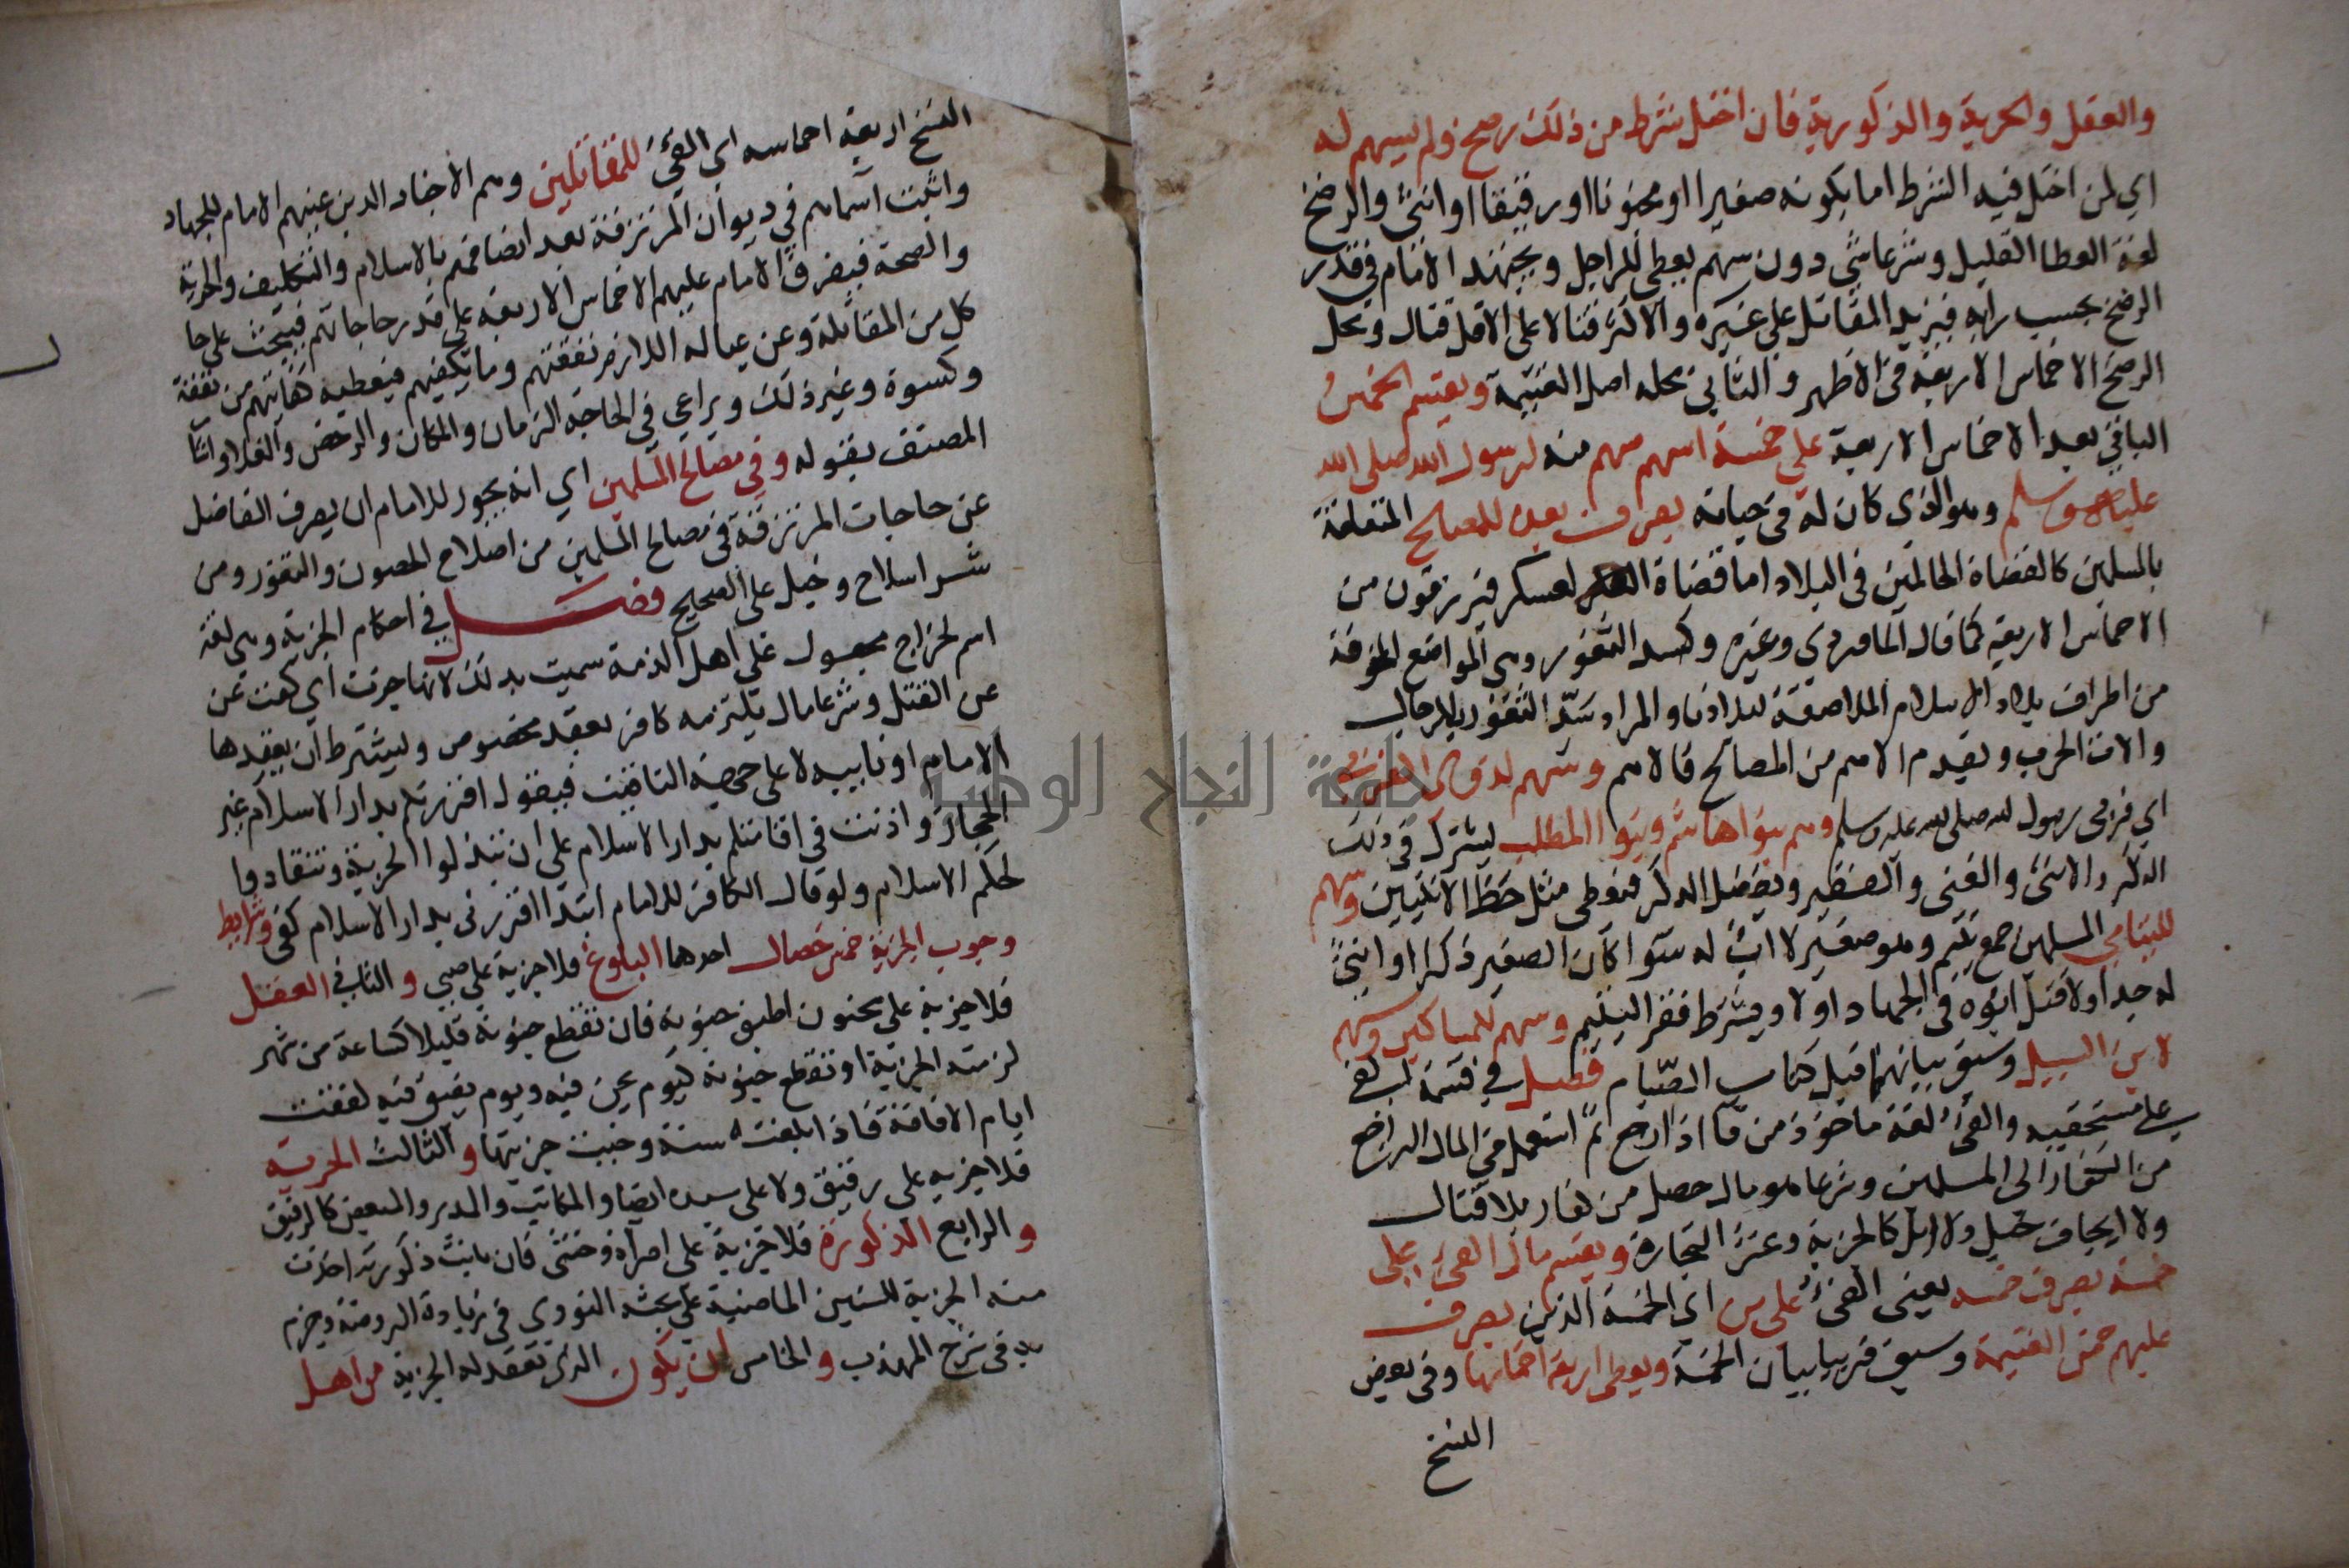 والعقل والحرية والذكورية فان اختل شرط من ذلك رضخ ولم يسهم له
اي لمن اختل فيه الشرط اما بكونه صغيرا او مجنونا او رقيقا او انثى والرضخ
لغة العطا القليل وشرعا شي دون سهم يعطي للراجل ويجتهد الامام في قدر
الرضخ بحسب رايه فيزيد المقاتل على غيره والاكثر قتالا على الاقل قتال ومحل
الرضخ الاخماس الاربعة في الاظهر والثاني محله اصل الغنيمة ويقسم الخمس
الباقي بعد الاخماس الاربعة على خمسة اسهم سهم منه لرسول الله صلى الله
عليه وسلم وهو الذي كان له في حياته يصرف بعده للمصالح المتعلقة
بالمسلمين كالقضاة الحاكمين في البلاد اما قضاة العسكر فيرزقون من
الاخماس الاربعة كما قال الماوردي وغيره وكسد الثغور وهي المواضع المخوفة
من اطراف بلاد الاسلام الملاصقة لبلادنا والمراد سد الثغور بالرجال
والات الحرب ويقدم الاهم من المصالح فالاهم وسهم لذوي القربى
اي قربى رسول الله صلى الله عليه وسلم وهم بنوا هاشم وبنوا المطلب يشترك في ذلك
الذكر والانثى والغني والفقير ويفضل الذكر فيعطى مثل حظ الانثيين وسهم
لليتامي المسلمين جمع يتيم وهو صغير لا اب له سوا كان الصغير ذكرا او انثى
له جد اولا قتل ابوه في الجهاد اولا ويشترط فقر اليتيم وسهم للمساكين وسهم
لابن السبيل وسبق بيانهما قبيل كتاب الصيام فصل في قسمة الفي
على مستحقيه والفئ لغة ماخوذ من فا اذا رجع ثم استعمل في المال الراجع
من الكفار الى المسلمين وشرعا هو مال حصل من كفار بلا قتال
ولا ايجاف خيل ولا ابل كالجزية وعشر التجارة ويقسم مال الفئ على
خمسة يصرف خمسه يعني الفئ على من اي الخمسة الذين يصرف
عليهم خمس الغنيمة وسبق قريبا بيان الخمسة ويعطى اربعة اخماسها وفي بعض
النسخ
النسخ اربعة اخماسه اي الفئ للمقاتلين وهم الاجناد الذين عينهم الامام للجهاد
واثبت اسماهم في ديوان المرتزقة بعد اتصافهم بالاسلام والتكليف والحرية
والصحة فيفرق الامام عليهم الاخماس الاربعة على قدر حاجاتهم فيبحث على حا
كل من المقاتلة وعن عياله اللازم نفقتهم وما يكفيهم فيعطيه كفايتهم من نفقة
وكسوة وغير ذلك ويراعي في الحاجة الزمان والمكان والرخص والغلا واشا
المصنف بقوله وفي مصالح المسلمين اي انه يجوز للامام ان يصرف الفاضل
عن حاجات المرتزقة في مصالح المسلمين من اصلاح الحصون والثغور ومن
شرا سلاح وخيل على الصحيح فصل في احكام الجزية وهي لغة
اسم لخراج مجعول على اهل الذمة سميت بذلك لانها جزت اي كفت عن
عن القتل وشرعا مال يلتزمه كافر بعقد مخصوص ويشترط ان يعقدها
الامام او نايبه لا على جهة التاقيت فيقول اقررتكم بدار الاسلام غير
الحجاز واذنت في اقامتكم بدار الاسلام على ان تبذلوا الجزية وتنقادوا
لحكم الاسلام ولو قال الكافر للامام ابتدا اقررني بدار الاسلام كفى وشرايط
وجوب الجزية خمس خصال احدها البلوغ فلا جزية على صبي والثاني العقل
فلا جزية على مجنون اطبق جنونه فان تقطع جنونه قليلا كساعة من شهر
لزمته الجزية او تقطع جنونه كيوم يجن فيه ويوم يفيق فيه لفقت
ايام الافاقة فاذا بلغت سنة وجبت جزيتها والثالث الحرية
فلا جزيه على رقيق ولا على سيده ايضا والمكاتب والمدبر والمبعض كالرقيق
والرابع الذكورة فلا جزية على امراة وخنثى فان بانت ذكوريته اخذت
منه الجزية للسنين الماضية على بحثه النووي في زيادة الروضة وجزم
به في شرح المهذب والخامس ان يكون الذي تعقد له الجزية من اهل
جامعة النجاح الوطنية